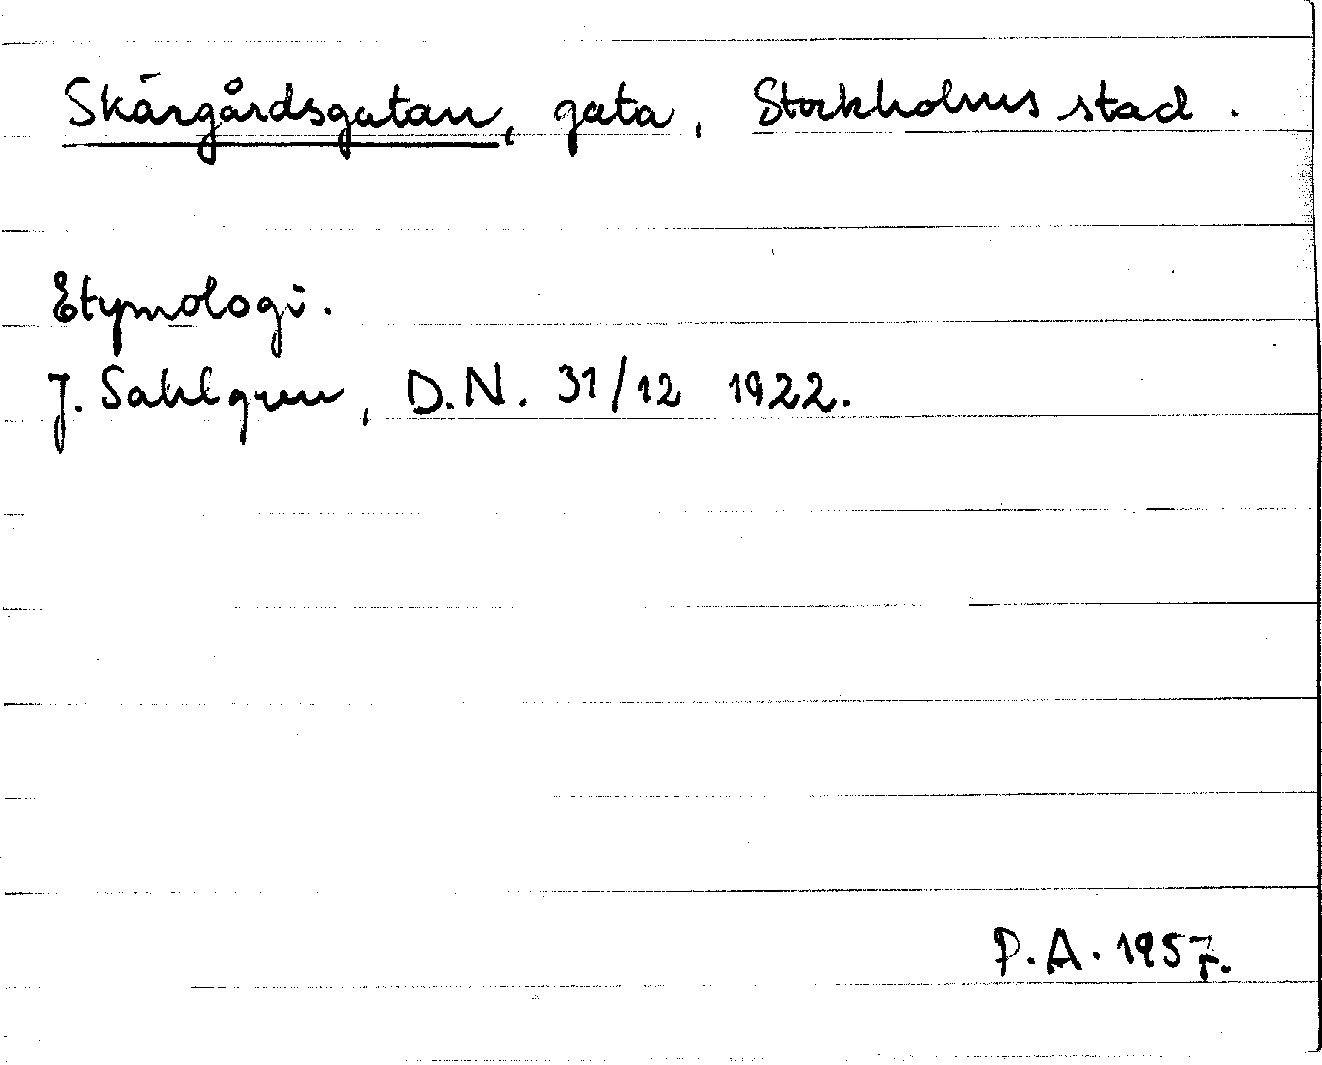 Skärgårdsgatan, gata, Stockholms stad.
Etymologi.
J. Sahlgren, D.N. 31/12 1922.
P.A. 1957.